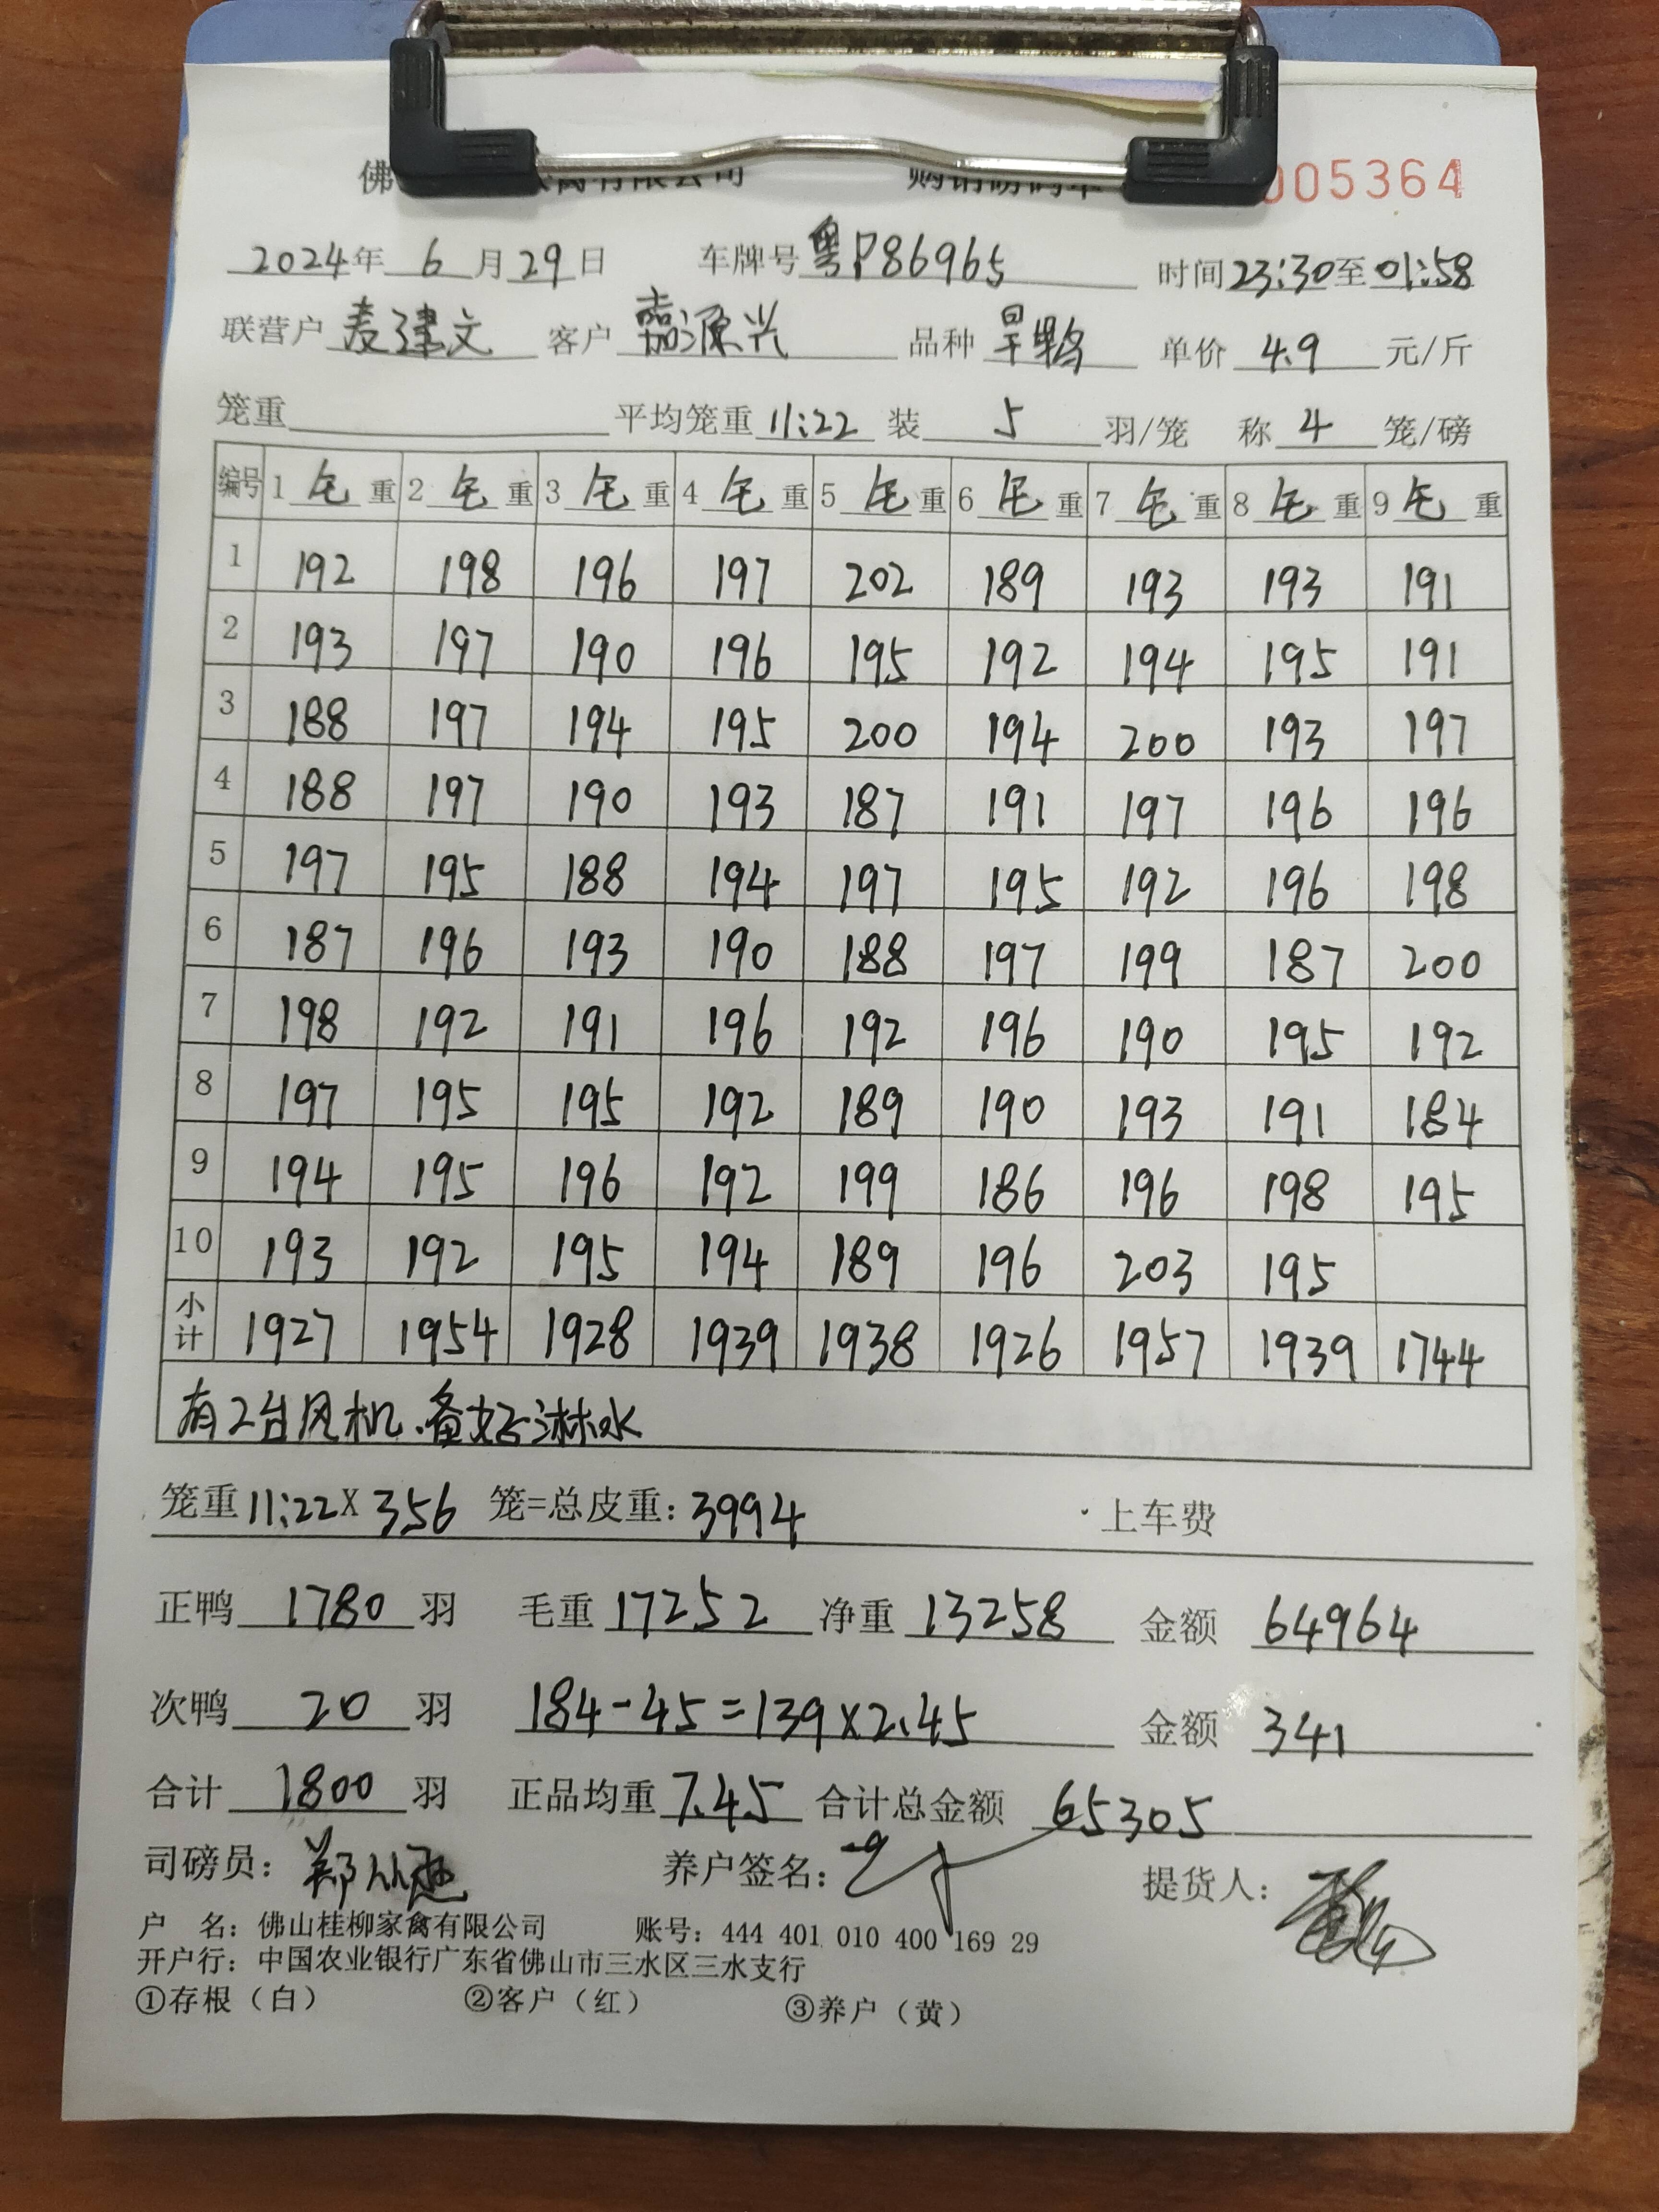 005364
2024年 6 月 29 日 车牌号 粤P86965 时间 23:30 至 01:58
联营户 麦建文 客户 嘉源兴 品种 旱鸭 单价 4.9 元/斤
笼重 平均笼重 11:22 装 5 羽/笼 称 4 笼/磅
编号 1 毛 重 2 毛 重 3 毛 重 4 毛 重 5 毛 重 6 毛 重 7 毛 重 8 毛 重 9 毛 重
1 192 198 196 197 202 189 193 193 191
2 193 197 190 196 195 192 194 195 191
3 188 197 194 195 200 194 200 193 197
4 188 197 190 193 187 191 197 196 196
5 197 195 188 194 197 195 192 196 198
6 187 196 193 190 188 197 199 187 200
7 198 192 191 196 192 196 190 195 192
8 197 195 195 192 189 190 193 191 184
9 194 195 196 192 199 186 196 198 195
10 193 192 195 194 189 196 203 195
小计 1927 1954 1928 1939 1938 1926 1957 1939 1744
有2台风机、备好淋水
笼重 11:22 X 356 笼=总皮重: 3994 上车费
正鸭 1780 羽 毛重 17252 净重 13258 金额 64964
次鸭 20 羽 184-45=139×2.45 金额 341
合计 1800 羽 正品均重 7.45 合计总金额 65305
司磅员: 养户签名: 提货人:
户 名: 佛山桂柳家禽有限公司 账号: 444 401 010 400 169 29
开户行: 中国农业银行广东省佛山市三水区三水支行
①存根（白） ②客户（红） ③养户（黄）